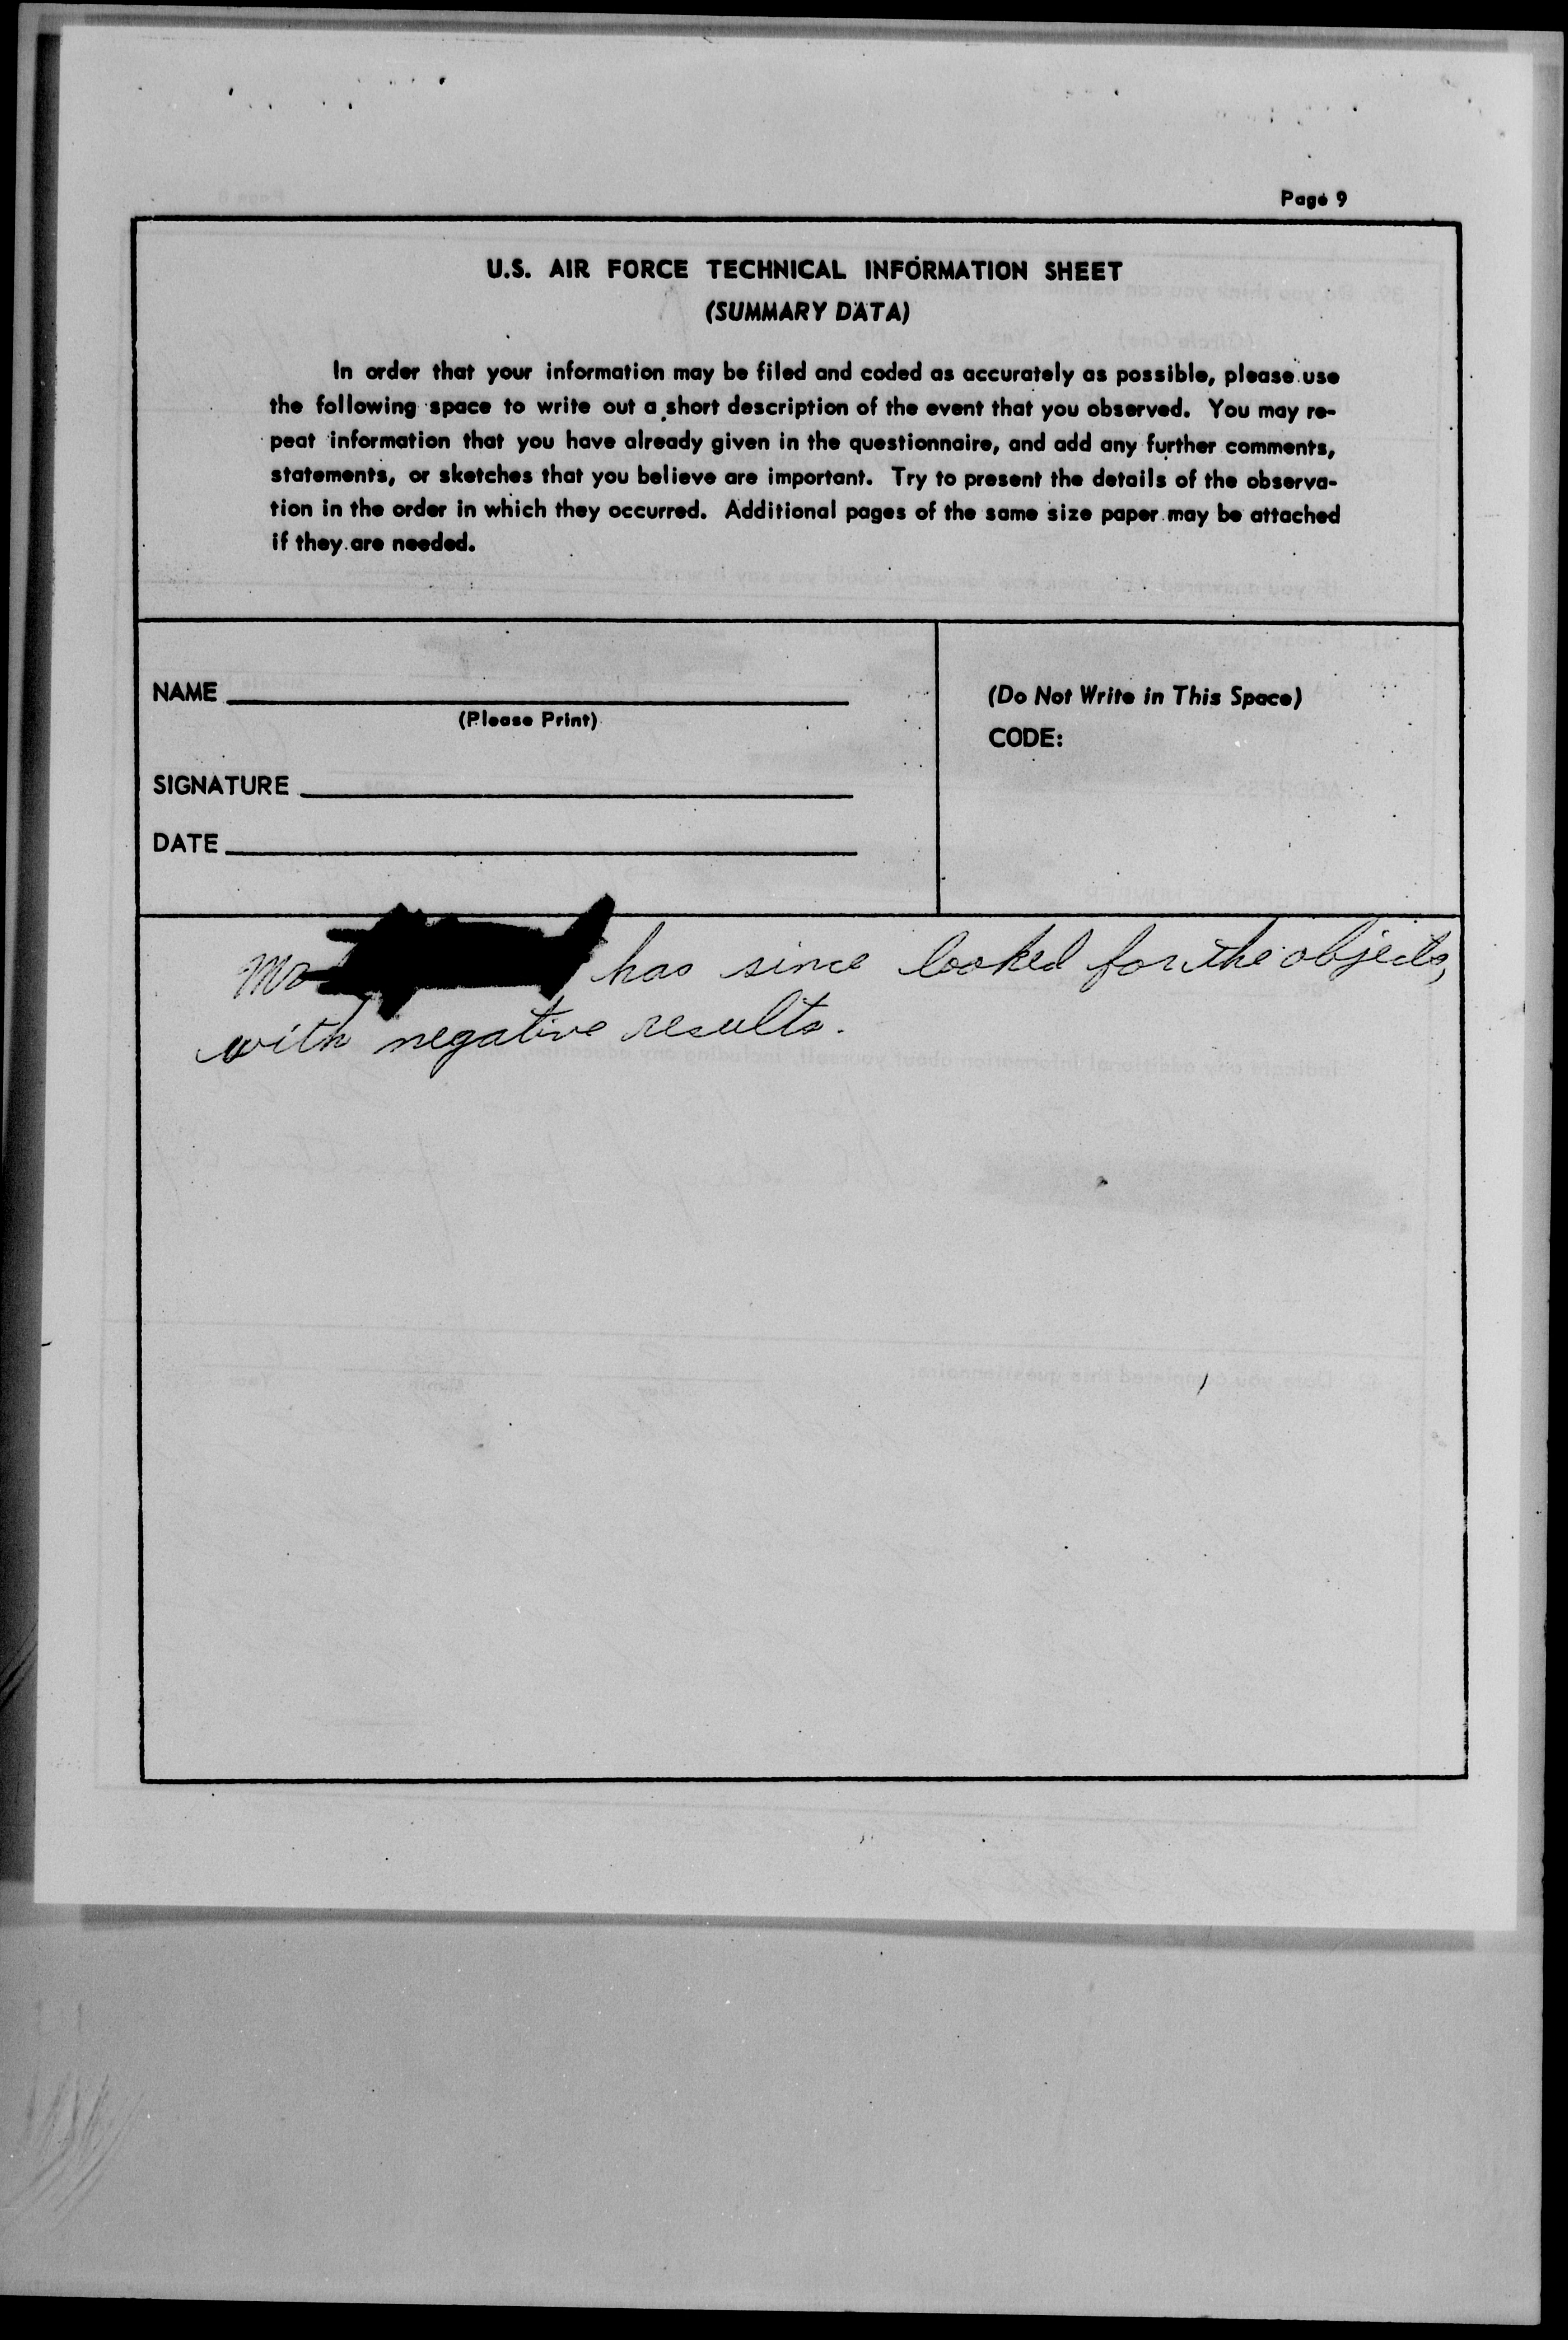 Page 9
U.S. AIR FORCE TECHNICAL INFORMATION SHEET
(SUMMARY DATA)
In order that your information may be filed and coded as accurately as possible, please use
the following space to write out a short description of the event that you observed. You may re-
peat information that you have already given in the questionnaire, and add any further comments,
statements, or sketches that you believe are important. Try to present the details of the observa-
tion in the order in which they occurred. Additional pages of the same size paper may be attached
if they are needed.
NAME
(Please Print)
SIGNATURE
DATE
(Do Not Write in This Space)
CODE:
has since looked for the objects,
with negative results.